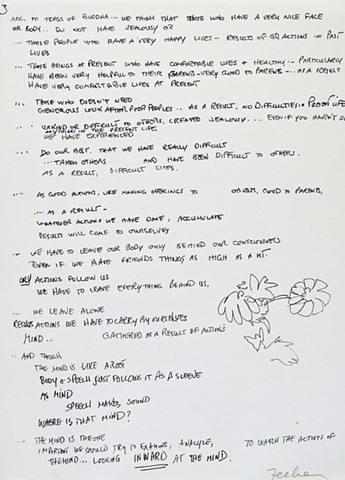 3
ACC. TO TEXAS OF BUDDHA - WE THINK THAT THOSE WHO HAVE A VERY NICE FACE
OR BODY.. DO NOT HAVE JEALOUSY
... THOSE PEOPLE WHO HAVE A VERY HAPPY LIVES - RESULTS OF ACTIONS IN PAST
LIVES
... THOSE BEINGS AT PRESENT WHO HAVE COMFORTABLE LIVES & HEALTHY - PARTICULARLY
HAVE BEEN VERY HELPFUL TO THEIR PARENTS - VERY GOOD TO PARENTS -... AS A RESULT
HAVE VERY COMFORTABLE LIVES AT PRESENT
THOSE WHO DOESN'T NEED
GENEROUS LOOK AFTER POOR PEOPLES .. AS A RESULT, NO DIFFICULTIES IN LIFE
... UNKIND OR DIFFICULT TO OTHERS, CREATED JEALOUSY.... EVEN IF YOU HAVEN'T
ANYTHING IN THE PRESENT LIFE
WE HAVE EXPERIENCED
... DO OUR BEST. THAT WE HAVE REALLY DIFFICULT
... TAKEN OTHERS AND HAVE BEEN DIFFICULT TO OTHERS.
AS A RESULT, DIFFICULT LIVES.
... AS GOOD ACTIONS, LIKE MAKING OFFERINGS TO OTHERS, GOOD TO PARENTS,
... AS A RESULT -
WHATEVER ACTIONS WE HAVE DONE, ACCUMULATE
RESULTS WILL COME TO OURSELVES
... WE HAVE TO LEAVE OUR BODY ONLY BEHIND OUR CONSCIOUSNESS
EVEN IF WE HAVE FRIENDS THINGS AS HIGH AS A MT.
ONLY ACTIONS FOLLOW US
WE HAVE TO LEAVE EVERYTHING BEHIND US.
... WE LEAVE ALONE
RESULTS ACTIONS WE HAVE TO CARRY BY OURSELVES
MIND... GATHERED AS A RESULT OF ACTIONS
... AND
THE MIND IS LIKE A ROOT
BODY & SPEECH JUST FOLLOWS IT AS A SLEEVE
AS MIND
SPEECH MAKES SOUND
WHERE IS THAT MIND?
... THE MIND IS THE ONE
IMPORTANT WE SHOULD TRY TO EXAMINE, ANALYZE, TO WATCH THE ACTION OF
THE MIND... LOOKING INWARD AT THE MIND.